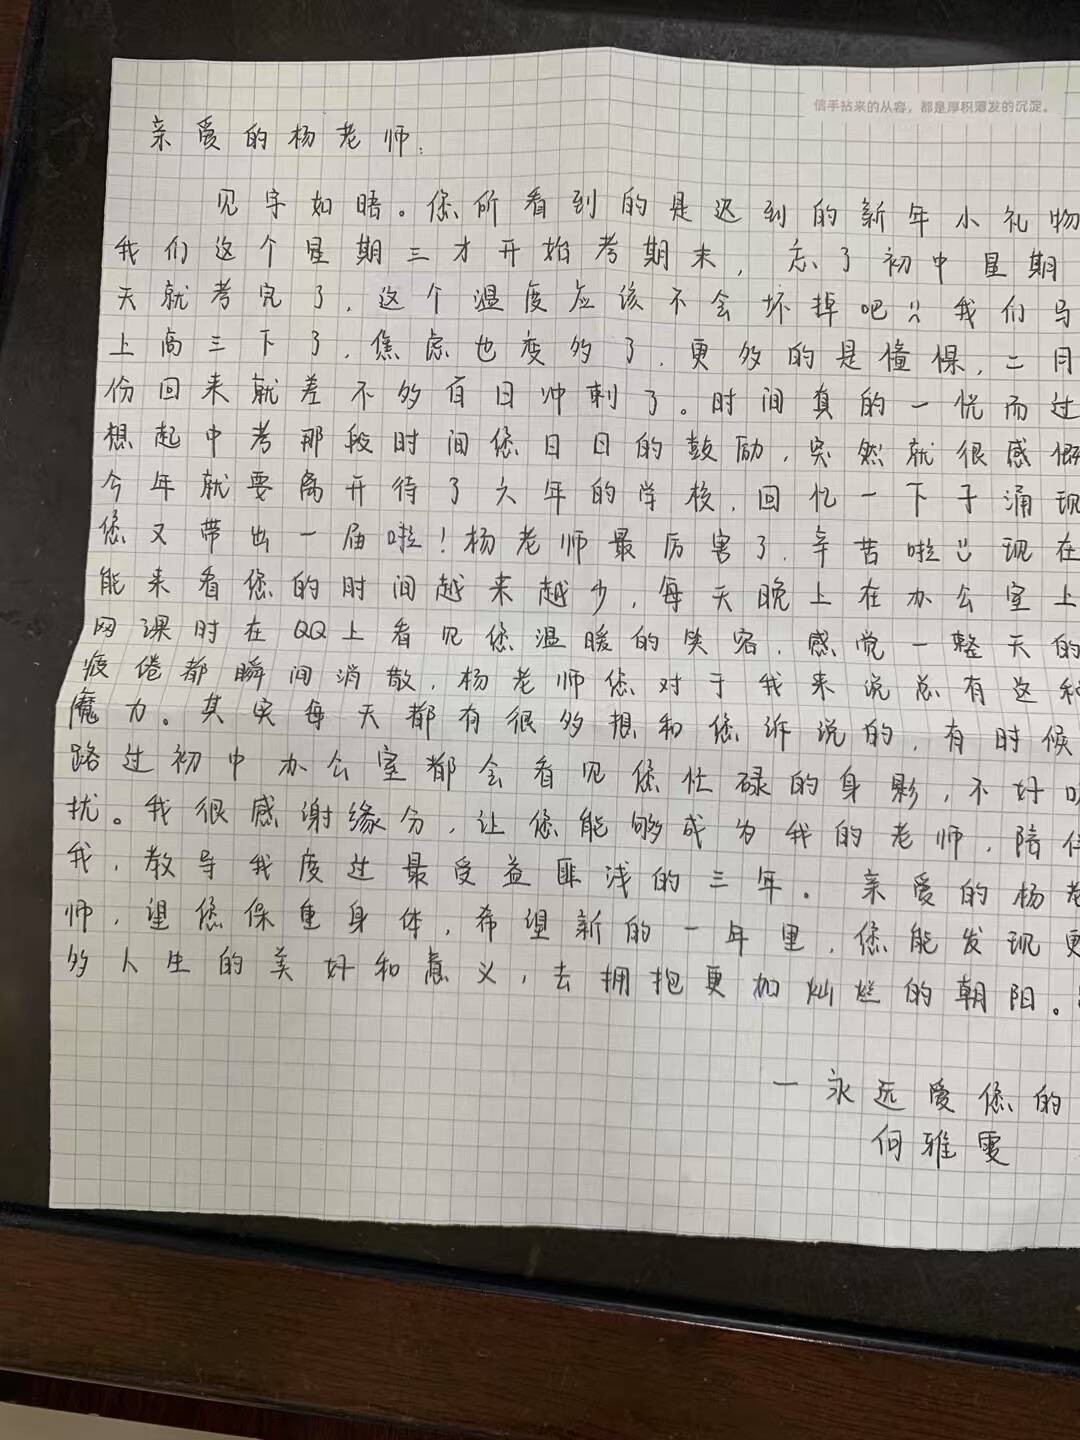 信手拈来的从容，都是厚积薄发的沉淀。
亲爱的杨老师：
见字如晤。您所看到的是迟到的新年小礼物
我们这个星期三才开始考期末，忘了初中星期
天就考完了，这个温度应该不会坏掉吧 我们马
上高三下了，焦虑也变多了，更多的是憧憬，二月
份回来就差不多百日冲刺了。时间真的一恍而过
想起中考那段时间您日日的鼓励，突然就很感慨
今年就要离开待了六年的学校，回忆一下子涌现
您又带出一届啦！杨老师最厉害了，辛苦啦 现在
能来看您的时间越来越少，每天晚上在办公室上
网课时在QQ上看见您温暖的笑容，感觉一整天的
疲倦都瞬间消散，杨老师您对于我来说总有这种
魔力。其实每天都有很多想和您诉说的，有时候
路过初中办公室都会看见您忙碌的身影，不好
扰。我很感谢缘分，让您能够成为我的老师，陪伴
我，教导我度过最受益匪浅的三年。亲爱的杨老
师，望您保重身体，希望新的一年里，您能发现更
多人生的美好和意义，去拥抱更加灿烂的朝阳。
一永远爱您的
何雅雯